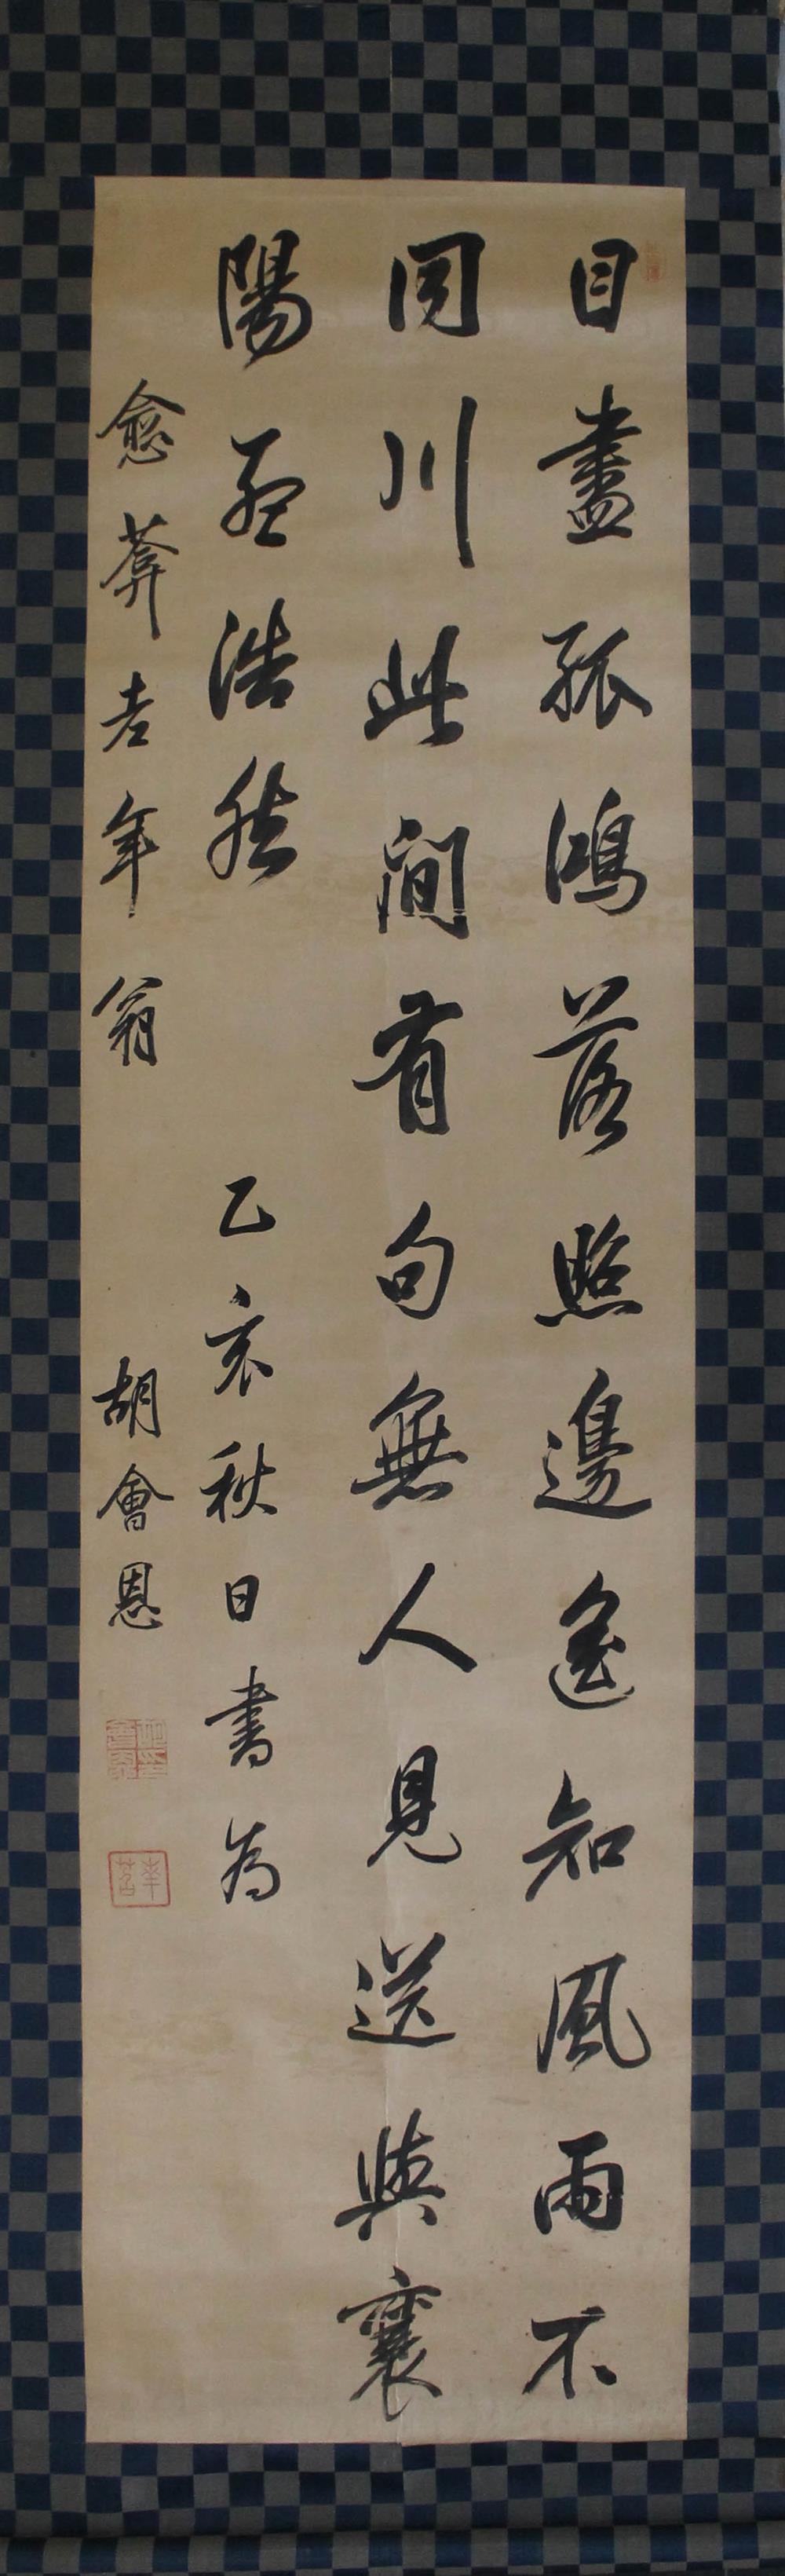 目盡孤鴻落照邊遙知風雨不
同川此間有句無人見送與襄
陽孟浩然 乙亥秋日書為
愈莾老年翁 胡會恩